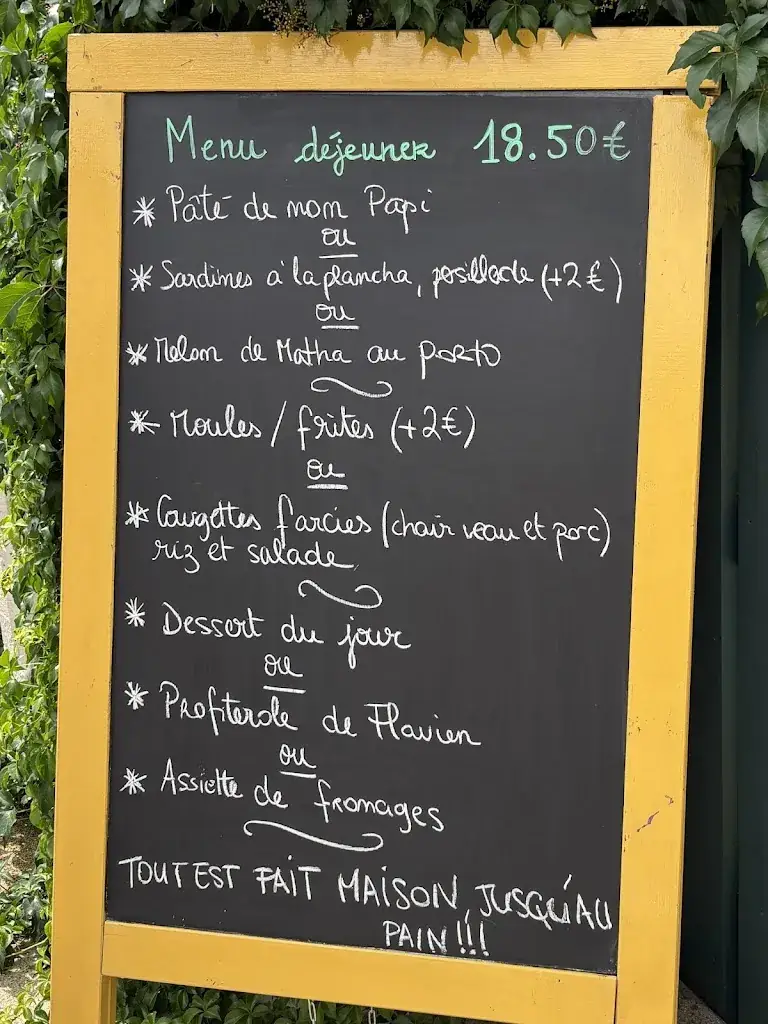 Menu déjeuner 18.50€
* Pâté de mon Papi
ou
* Sardines à la plancha, persillade (+2€)
ou
* Melon de Matha au porto
* Moules / frites (+2€)
ou
* Courgettes farcies (chair veau et porc)
riz et salade
* Dessert du jour
ou
* Profiterole de Flavien
ou
* Assiette de fromages
TOUT EST FAIT MAISON, JUSQU'AU
PAIN !!!